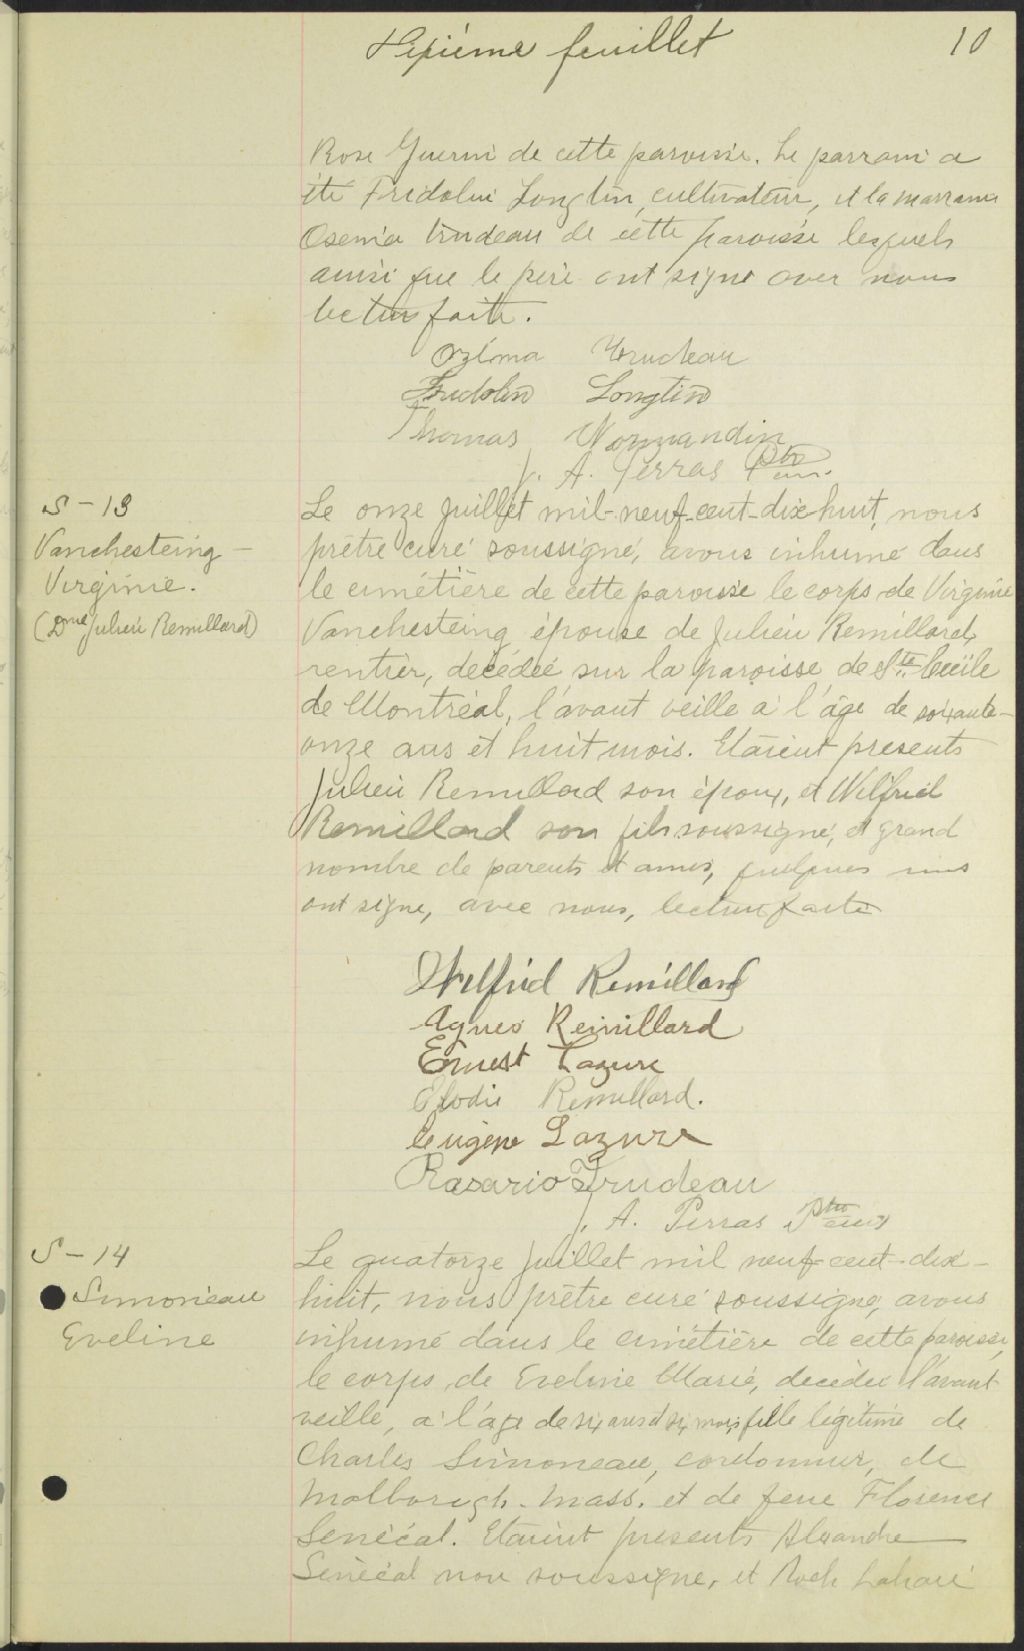 Dixième feuillet
10
Rose Guerin de cette paroisse. Le parrain a
été Fridolin Longtin, cultivateur, et la marraine
Osema Trudeau de cette paroisse lesquels
ainsi que le père ont signé avec nous
lecture faite.
Ozéma Trudeau
Fridolin Longtin
Thomas Normandin
J. A. Perras Ptre curé
S - 13
Vanchesteing -
Virginie.
(Dme Julien Remillard)
Le onze Juillet mil-neuf-cent-dix-huit, nous
prêtre curé soussigné, avons inhumé dans
le cimétière de cette paroisse le corps de Virginie
Vanchesteing, épouse de Julien Remillard,
rentier, décédée sur la paroisse de Ste. Cécile
de Montréal, l'avant veille à l'âge de soixante-
onze ans et huit mois. Etaient presents
Julien Remillard son époux, et Wilfrid
Remillard son fils soussigné, et grand
nombre de parents et amis, quelques uns
ont signé, avec nous, lecture faite
Wilfrid Remillard
Agnes Remillard
Ernest Lazure
Elodie Remillard.
Eugène Lazure
Rosario Trudeau
J. A. Perras Ptre curé
S - 14
Simoneau
Eveline
Le quatorze Juillet mil neuf-cent-dix-
huit, nous prêtre curé soussigné, avons
inhumé dans le cimétière de cette paroisse,
le corps de Eveline Marie, decédée l'avant
veille, à l'age de six ans et six mois fille légitime de
Charles Simoneau, cordonnier, de
Malborugh. Mass. et de feue Florence
Senécal. Etaient presents Alexandre
Senécal non soussigné, et Roch